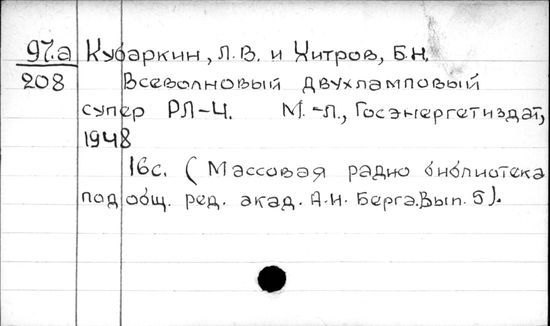 97.а Кубаркин, Л.В. и Хитров, Б.Н.
208 Всеволновый двухламповый
супер РЛ-4. М.-Л., Госэнергетиздат,
1948
16с. (Массовая радио библиотека
под общ. ред. акад. А.И. Берга. Вып. 5).